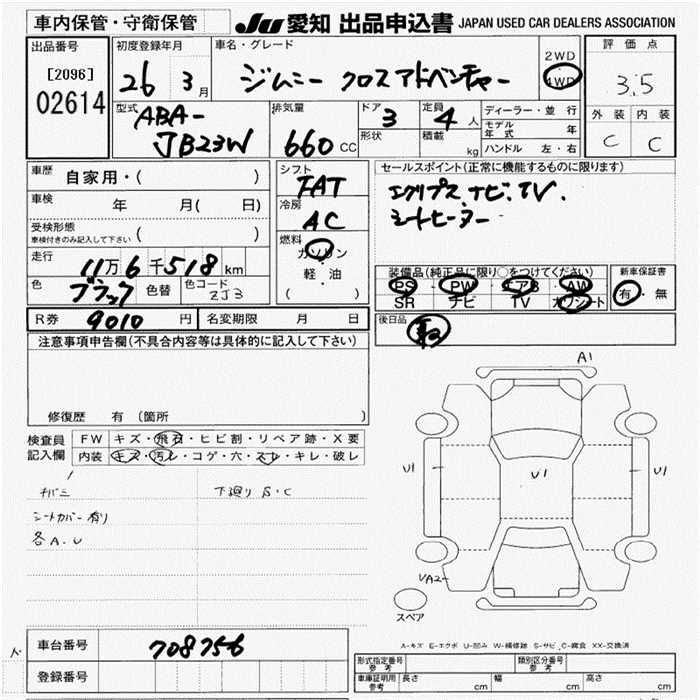 車内保管・守衛保管 JU 愛知 出品申込書 JAPAN USED CAR DEALERS ASSOCIATION
出品番号 初度登録年月 車名・グレード 2WD 評価点
[2096] 26 年 3月 ジムニー クロスアドベンチャー 4WD 3.5
02614 型式 排気量 ドア 定員 ディーラー・並行 外装 内装
ABA- 3 4人 モデル年式 年
JB23W 660 CC 形状 積載 kg ハンドル 左・右 C C
車歴 自家用・( ) シフト FAT セールスポイント(正常に機能するものに限ります)
車検 年 月( 日) 冷房 AC エクリプス ナビ、TV、
受検形態 ( ) シートヒーター
車検付きのみ記入して下さい
燃料 ガソリン
走行 11万6千518km 軽・油 装備品(純正品に限り○をつけてください) 新車保証書
色 ブラック 色替 色コード ZJ3 ( ) PS・PW・エアB・AW 有・無
SR ナビ TV カワシート
R券 9010 円 名変期限 月 日 後日品 有
注意事項申告欄(不具合内容等は具体的に記入して下さい)
A1
修復歴 有 (箇所 )
検査員 FW キズ・飛石・ヒビ割・リペア跡・X要
記入欄 内装 キズ・汚レ・コゲ・穴・スレ・キレ・破レ
U1 U1 U1
チバミ 下廻り S・C
シートカバー有り
各A.U
VA2-
スペア
A-キズ E-エクボ U-凹み W-補修跡 S-サビ C-腐食 XX-交換済
車台番号 708756
形式指定番号 参考 類別区分番号 参考
登録番号 車庫証明用 参考 長さ cm 幅 cm 高さ cm